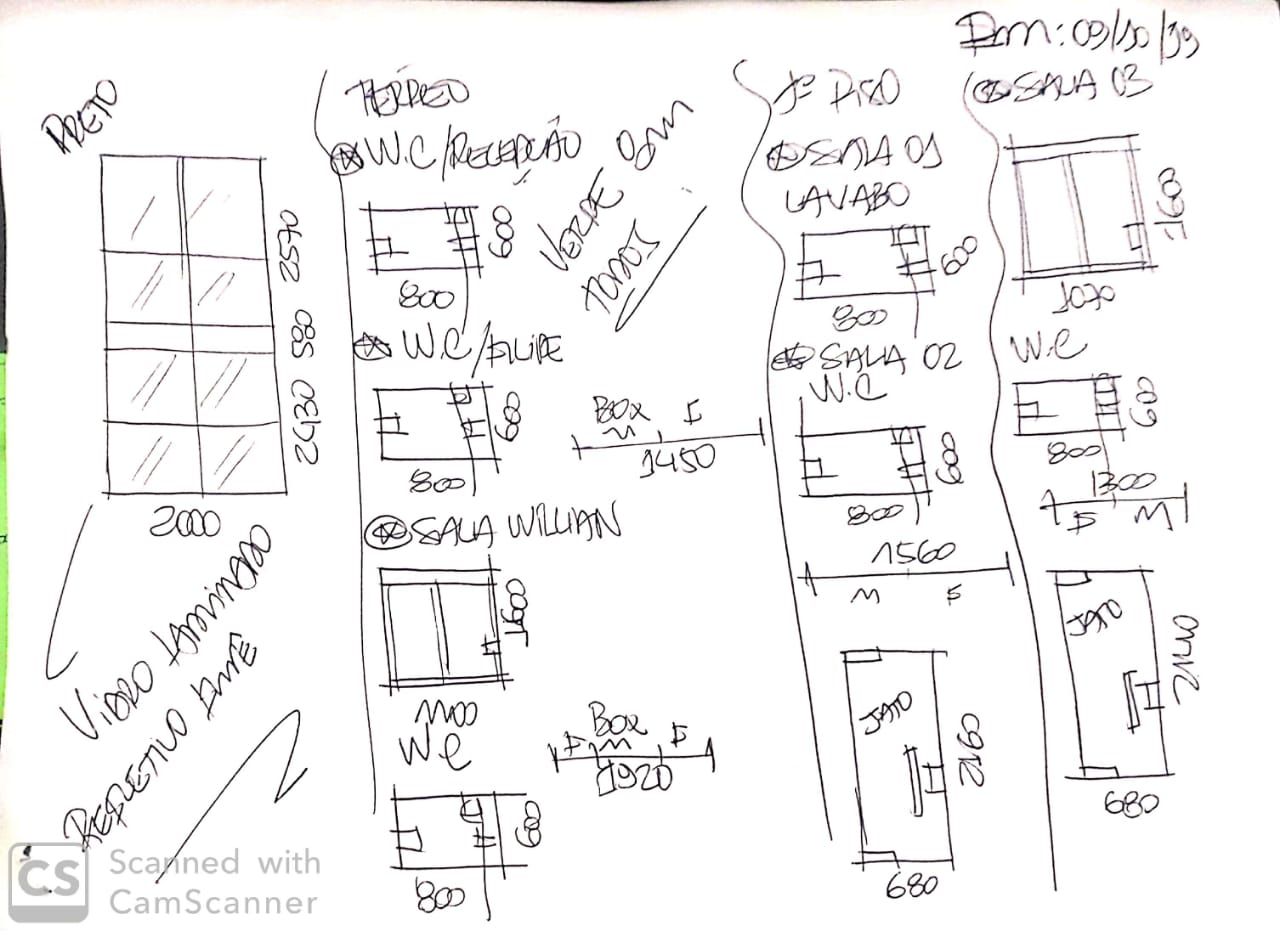 PRETO
2452
580
2430
2000
VIDRO LAMINADO
REFLETIVO
TÉRREO
W.C/RECEPÇÃO
600
800
VERDE
TODOS
W.C/FILIPE
600
800
BOX
M F
1450
SALA WILLIAN
1600
W.C
BOX
F M F
1920
600
800
1º PISO
SALA 01
LAVABO
600
800
SALA 02
W.C
600
800
1560
M F
JATO
2160
680
SALA 03
1600
1070
W.C
600
800
1300
F M
JATO
680
CS Scanned with
CamScanner